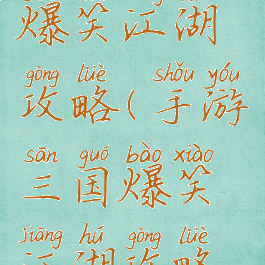 爆笑江湖
gōng lüè shǒu yóu
攻略(手游
sān guó bào xiào
三国爆笑
jiāng hú gōng lüè
江湖攻略